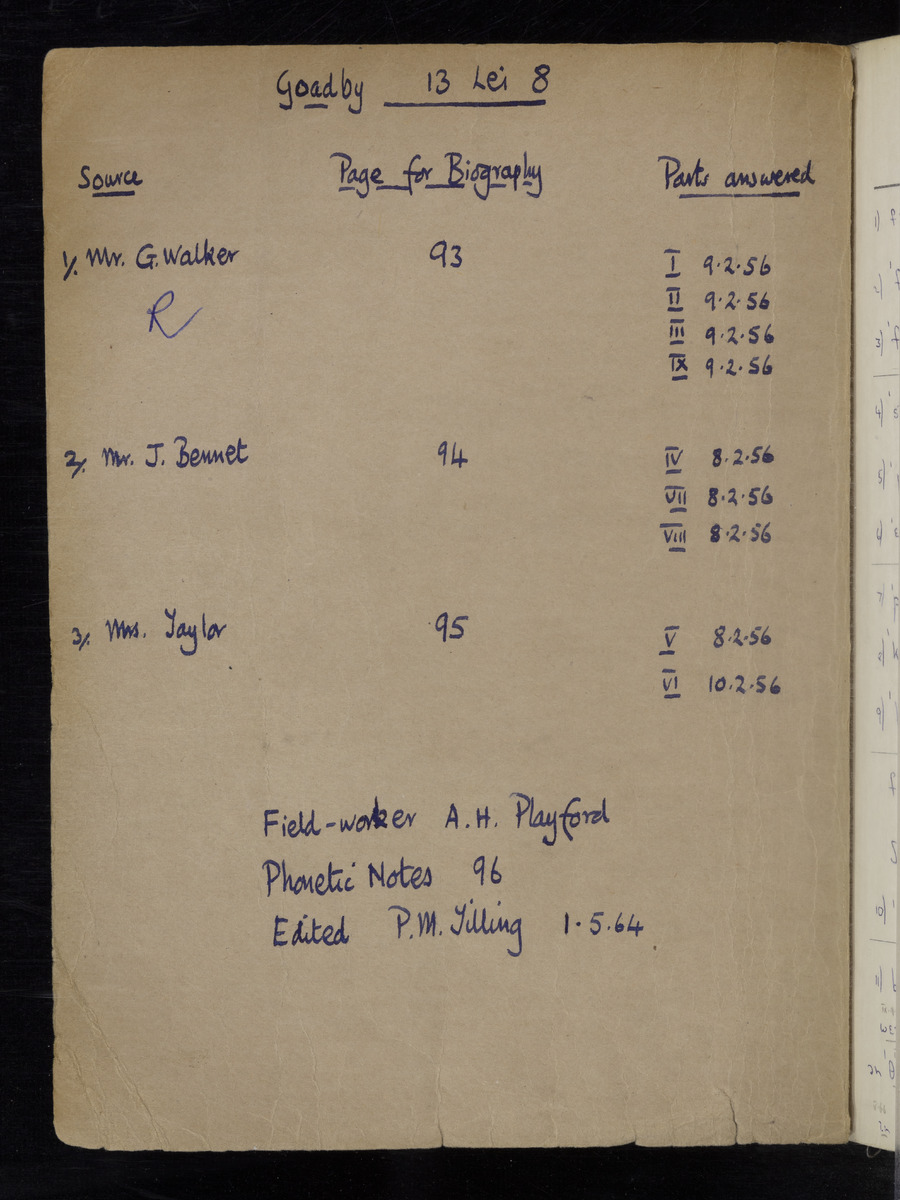 Goadby 13 Lei 8
Source Page for Biography Parts answered
1/. Mr. G. Walker 93 I 9.2.56
R II 9.2.56
III 9.2.56
IX 9.2.56
2/. Mr. J. Bennet 94 IV 8.2.56
VII 8.2.56
VIII 8.2.56
3/. Mrs. Taylor 95 V 8.2.56
VI 10.2.56
Field-worker A.H. Playford
Phonetic Notes 96
Edited P.M. Tilling 1.5.64